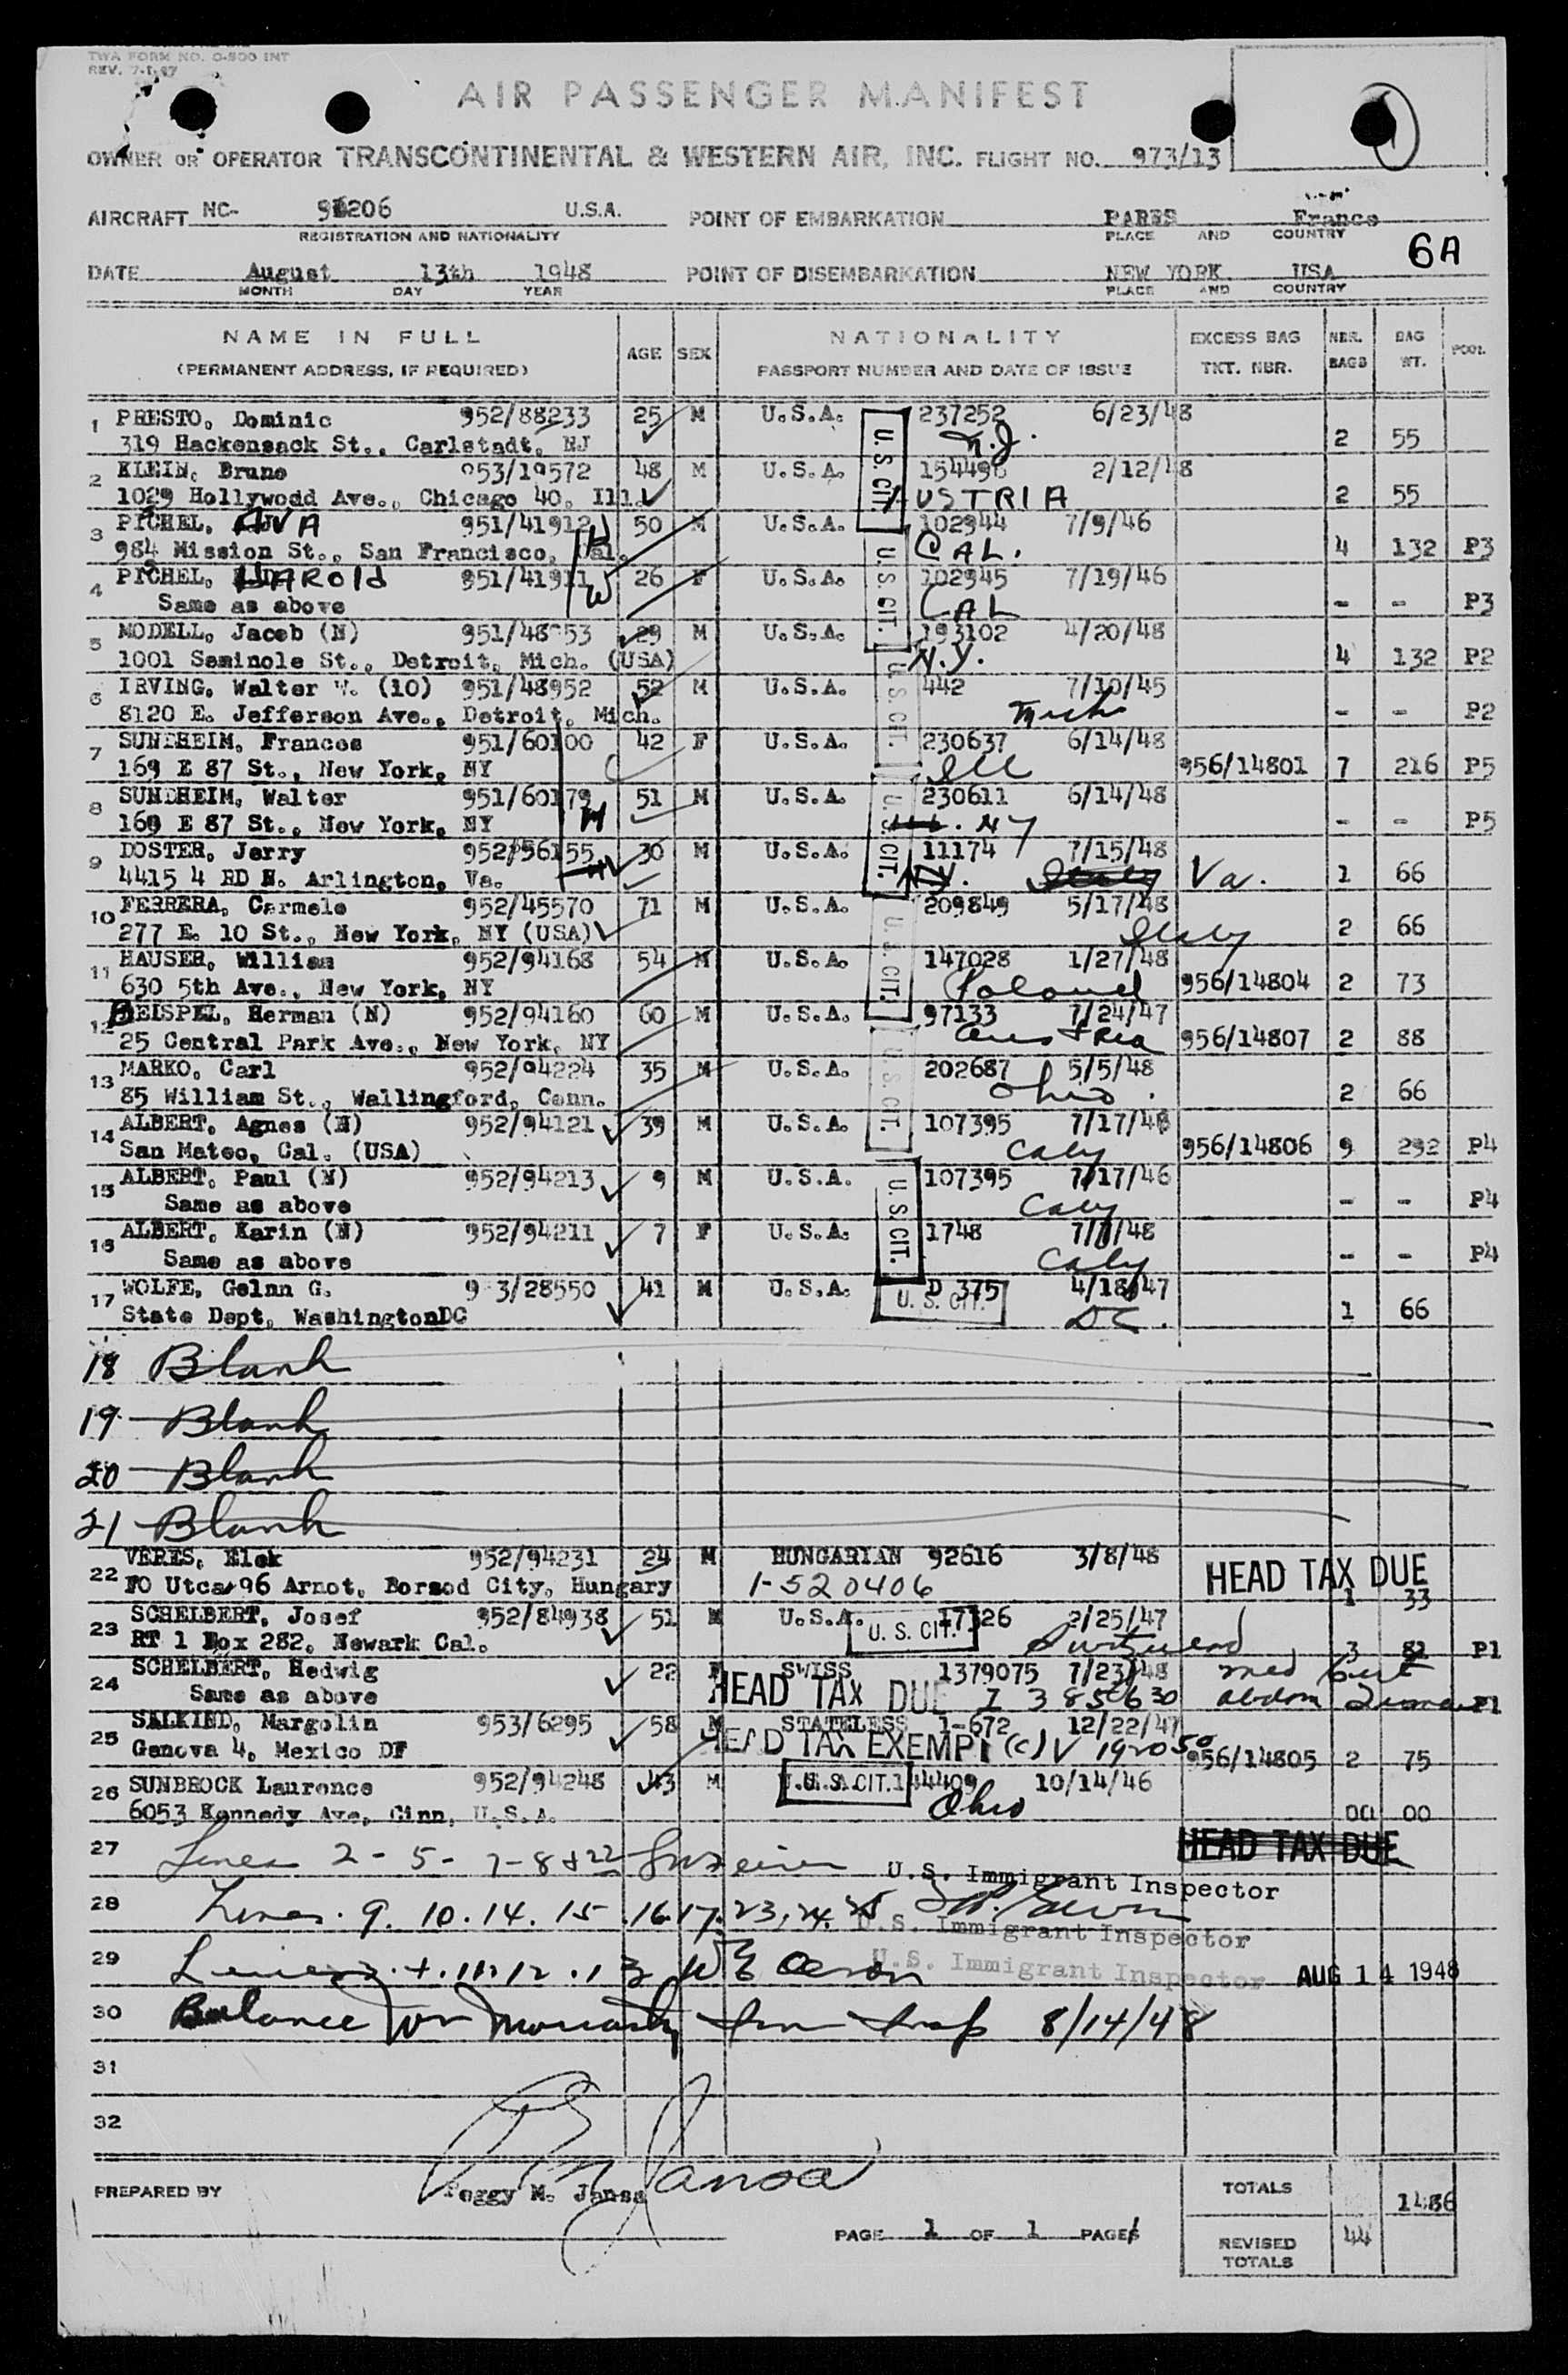 TWA FORM NO. 0-800 INT
REV. 7-1-47
AIR PASSENGER MANIFEST
OWNER OR OPERATOR TRANSCONTINENTAL & WESTERN AIR, INC. FLIGHT NO. 973/13
AIRCRAFT NC- 206 U.S.A. POINT OF EMBARKATION PARIS France
REGISTRATION AND NATIONALITY PLACE AND COUNTRY
6A
DATE August 13th 1948 POINT OF DISEMBARKATION NEW YORK USA
MONTH DAY YEAR PLACE AND COUNTRY
NAME IN FULL AGE SEX NATIONALITY EXCESS BAG NBR. BAG POOL
(PERMANENT ADDRESS, IF REQUIRED) PASSPORT NUMBER AND DATE OF ISSUE TKT. NBR. BAGS WT.
1 PRESTO, Dominic 952/88233 25 M U.S.A. 237252 6/23/48
319 Hackensack St., Carlstadt, NJ N.J. 2 55
2 KLEIN, Bruno 953/19572 48 M U.S.A. 2/12/48
1029 Hollywood Ave., Chicago 40, Ill. AUSTRIA 2 55
3 PICHEL, 951/41912 50 M U.S.A. 102944 7/9/46
984 Mission St., San Francisco, Cal. CAL. 4 132 P3
4 PICHEL, HAROld 951/41911 26 F U.S.A. 102945 7/19/46
Same as above CAL - - P3
5 MODELL, Jacob (N) 29 M U.S.A. 193102 4/20/48
1001 Seminole St., Detroit, Mich. (USA) N.Y. 4 132 P2
6 IRVING, Walter W. (10) 951/48952 52 M U.S.A. 442 7/10/45
8120 E. Jefferson Ave., Detroit, Mich. Mich - - P2
7 SUNDHEIM, Frances 951/60100 42 F U.S.A. 230637 6/14/48
169 E 87 St., New York, NY Ill 956/14801 7 216 P5
8 SUNDHEIM, Walter 951/60179 51 M U.S.A. 230611 6/14/48
169 E 87 St., New York, NY NY - - P5
9 DOSTER, Jerry 952/56155 30 M U.S.A. 11174 7/15/48
4415 4 RD N. Arlington, Va. Va. 1 66
10 FERRERA, Carmelo 952/45570 71 M U.S.A. 209849 5/17/48
277 E. 10 St., New York, NY (USA) Italy 2 66
11 HAUSER, William 952/94168 54 M U.S.A. 147028 1/27/48
630 5th Ave., New York, NY Poland 956/14804 2 73
12 BEISPEL, Herman (N) 952/94160 60 M U.S.A. 97133 7/24/47
25 Central Park Ave., New York, NY Austria 956/14807 2 88
13 MARKO, Carl 952/94224 35 M U.S.A. 202687 5/5/48
85 William St., Wallingford, Conn. Ohio. 2 66
14 ALBERT, Agnes (N) 952/94121 39 M U.S.A. 107395 7/17/46
San Mateo, Cal. (USA) Caly 956/14806 9 292 P4
15 ALBERT, Paul (N) 952/94213 9 M U.S.A. 107395 7/17/46
Same as above Caly - - P4
16 ALBERT, Karin (N) 952/94211 7 F U.S.A. 1748 7/ /48
Same as above Caly - - P4
17 WOLFE, Gelnn G. 9 3/28550 41 M U.S.A. D 375 4/18/47
State Dept, WashingtonDC U. S. CIT. DC. 1 66
U.S. CIT.
U.S. CIT.
U.S. CIT.
U.S. CIT.
U.S. CIT.
U.S. CIT.
U.S. CIT.
18 Blank
19 Blank
20 Blank
21 Blank
22 VERES, Elek 952/94231 24 M HUNGARIAN 92616 3/8/48 HEAD TAX DUE
FO Utca 96 Arnot, Borsod City, Hungary 1-520406 1 33
23 SCHELBERT, Josef 952/84938 51 M U.S.A. U. S. CIT. 17326 2/25/47
RT 1 Box 282, Newark Cal. Switzerland 3 81 P1
24 SCHELBERT, Hedwig 22 F SWISS 1379075 7/23/48 med Cert
Same as above HEAD TAX DUE I 385630 abdom P1
25 SALKIND, Margolin 953/6295 58 M STATELESS 1-672 12/22/47
Genova 4, Mexico DF HEAD TAX EXEMPT (c) V 192050 956/14805 2 75
26 SUNBROCK Laurence 952/94248 43 M U.S.A. CIT. 144409 10/14/46
6053 Kennedy Ave, Cinn, U.S.A. Ohio 00 00
HEAD TAX DUE
27 Lines 2-5-7-8+22
U.S. Immigrant Inspector
28 Lines. 9. 10. 14. 15 .16.17. 23, 24. 25
U.S. Immigrant Inspector
29 Lines 3. 4. 11. 12. 13
U.S. Immigrant Inspector AUG 14 1948
30 Balance Wm Moriarty Imm Insp 8/14/48
31
32
PREPARED BY Peggy M. Jansa
TOTALS 1486
PAGE 1 OF 1 PAGES
REVISED TOTALS 44